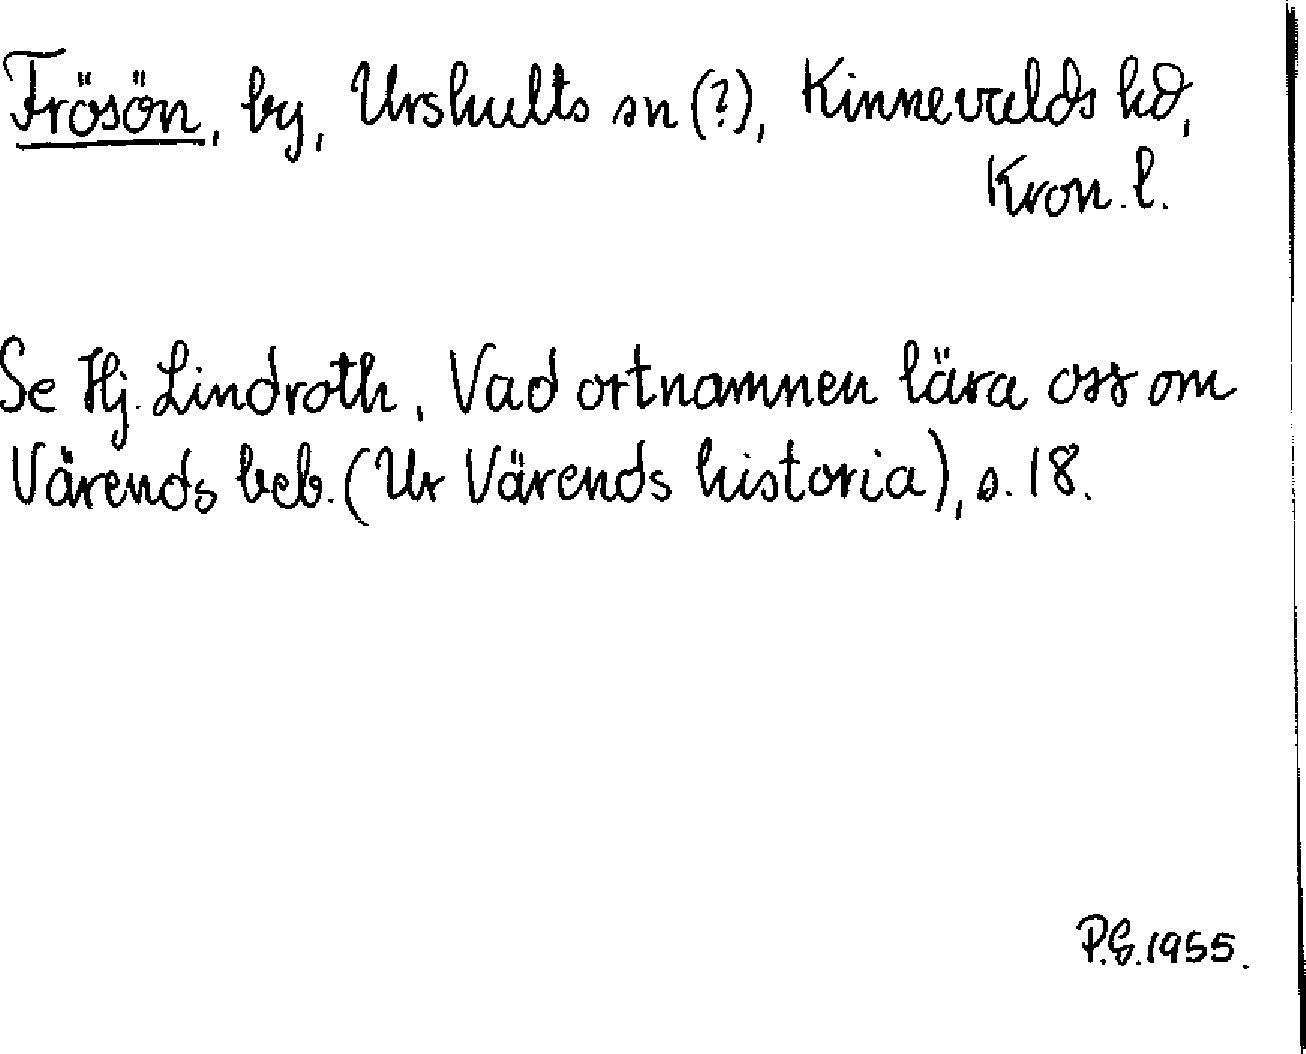 Frösön, by, Urshults sn (?), Kinnevalds hd,
Kron. l.
Se Hj. Lindroth, Vad ortnamnen lära oss om
Värends beb. (Ur Värends historia), s. 18.
P.G. 1955.